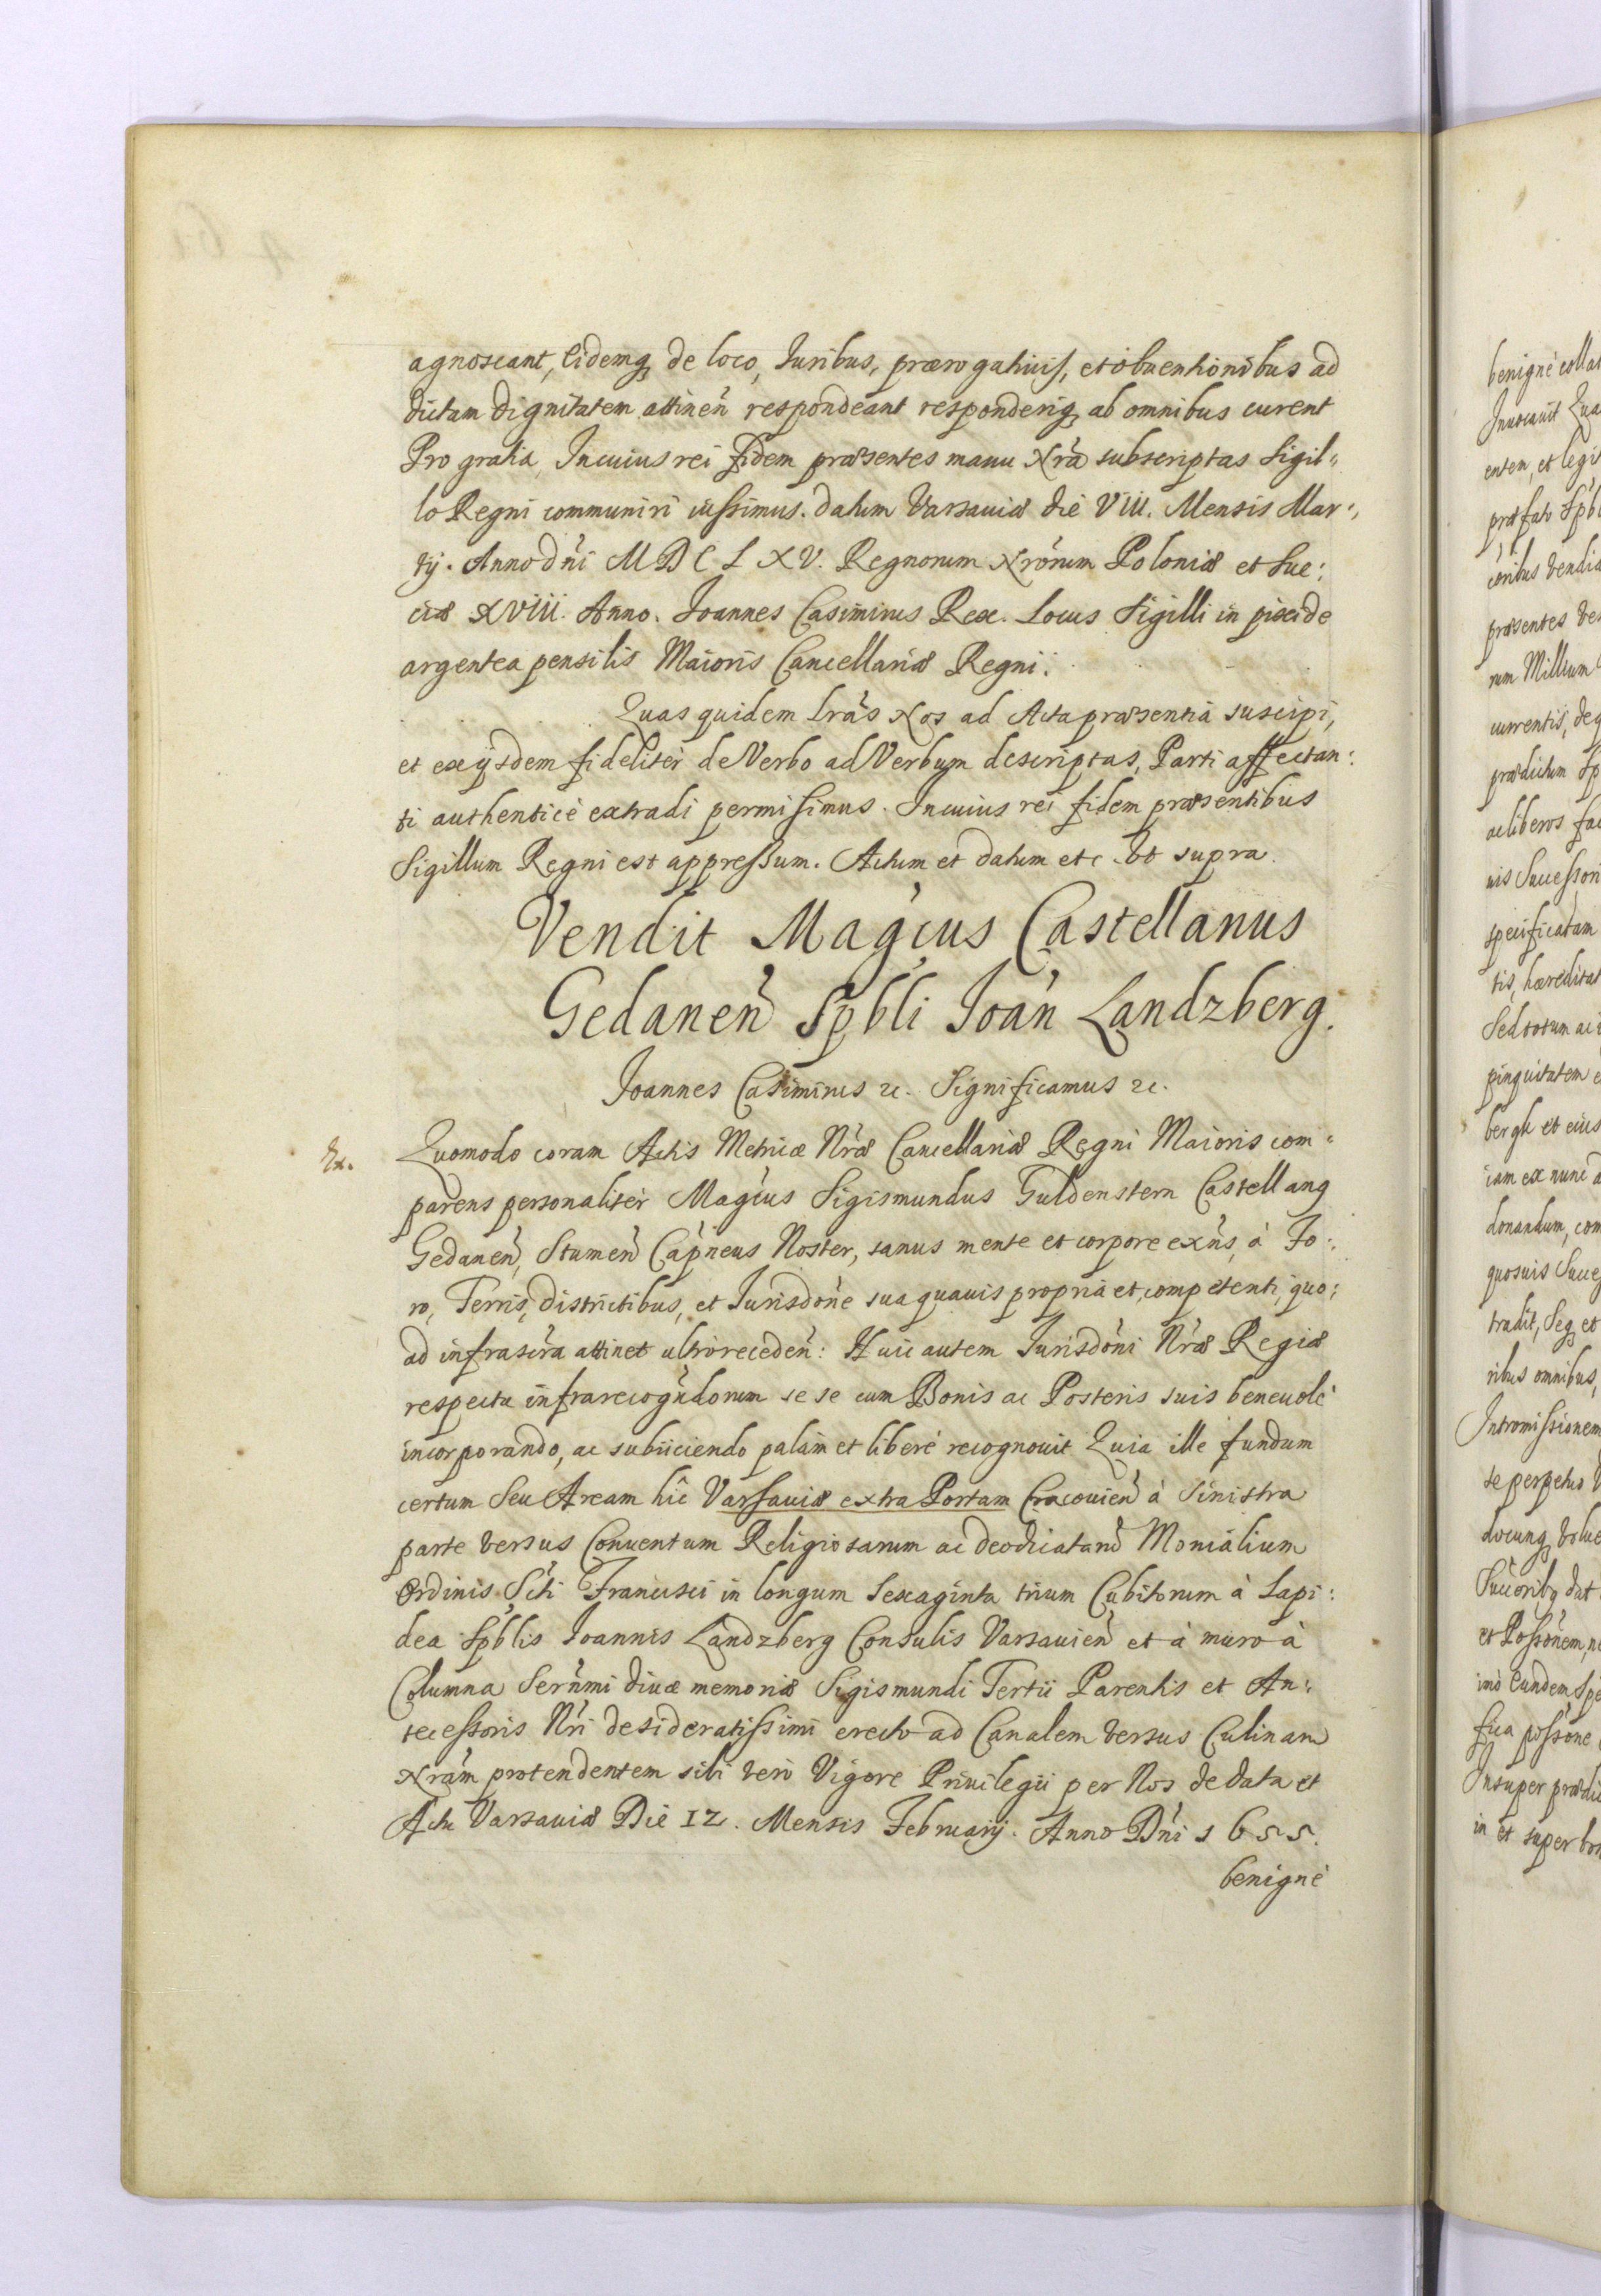 agnoscant, Eidemq de loco, Iuribus, prærogativis, et obuentionibus ad
dictam Dignitatem attinen̄ respondeant responderiq ab omnibus curent
Pro gratia, In cuius rei fidem præsentes manu Nrā subscriptas Sigil„
lo Regni communiri iussimus. Datum Varsaviæ die VIII. Mensis Mar„
tij. Anno Dn̄i MDCLXV. Regnorum Nrōrum Poloniæ et Sue:
ciæ XVIII. Anno. Ioannes Casimirus Rex. Locus Sigilli in pixide
argentea pensilis Maioris Cancellariæ Regni.
Quas quidem Lrās Nos ad Acta præsentia suscipi,
et ex ijsdem fideliter de Verbo ad Verbum descriptas, Parti affectan:
ti authenticè extradi permisimus. In cuius rei fidem præsentibus
Sigillum Regni est appressum. Actum et datum etc. Ut supra.
Vendit Magcus Castellanus
Gedanen̄ Spbli Ioan̄ Landzberg.
Joannes Casimirus etc. Significamus etc.
Ex.
Quomodo coram Actis Metricæ Nrǣ Cancellariæ Regni Maioris com„
parens personaliter Magcus Sigismundus Guldenstern Castellanq
Gedanen̄, Stumen̄ Capneus Noster, sanus mente et corpore exn̄s, à Fo„
ro, Terris, districtibus, et Jurisdōne sua quavis propria et competenti, quo:
ad infrascrā attinet ultrò receden̄: Huic autem Jurisdōni Nrǣ Regiæ
respectu infrarecogn̄dorum se se cum Bonis ac Posteris suis benevolè
incorporando, ac subiiciendo palàm et liberè recognovit Quia ille fundum
certum Seu Aream hîc Varsaviæ extra Portam Cracovien̄ à Sinistra
parte versus Conventum Religiosarum ac deodicatarū Monialium
Ordinis Scti Francisci in longum Sexaginta trium Cubitorum à Lapi:
dea Spblis Joannis Landzberg Consulis Varsavien̄ et à muro à
Columna Sern̄mi divæ memoriæ Sigismundi Tertii Parentis et An„
tecessoris Nrī desideratissimi erecto ad Canalem versus Culinam
Nrām protendentem sibi verò Vigore Privilegii per Nos de data et
Actu Varsaviæ Die 12. Mensis Februarij. Anno Dn̄i 1655.
benignè
benignè collat
enten, et legit
præfato Spbl
præsentes
rum Millium
currentis, de
prædictum Sp
ac liberos fa
uis Successori
specificatam
tis, hæreditat
Sed totum ac
pinguitatem
bergk et eius
iam ex nunc
donandum, com
quosvis Succes
tradit, Seq et
ribus omnibus,
Intromissionem
se perpetuò
et Possōnem,
imò Eundem Spe
sua possōne
Insuper prædic
in et super bon